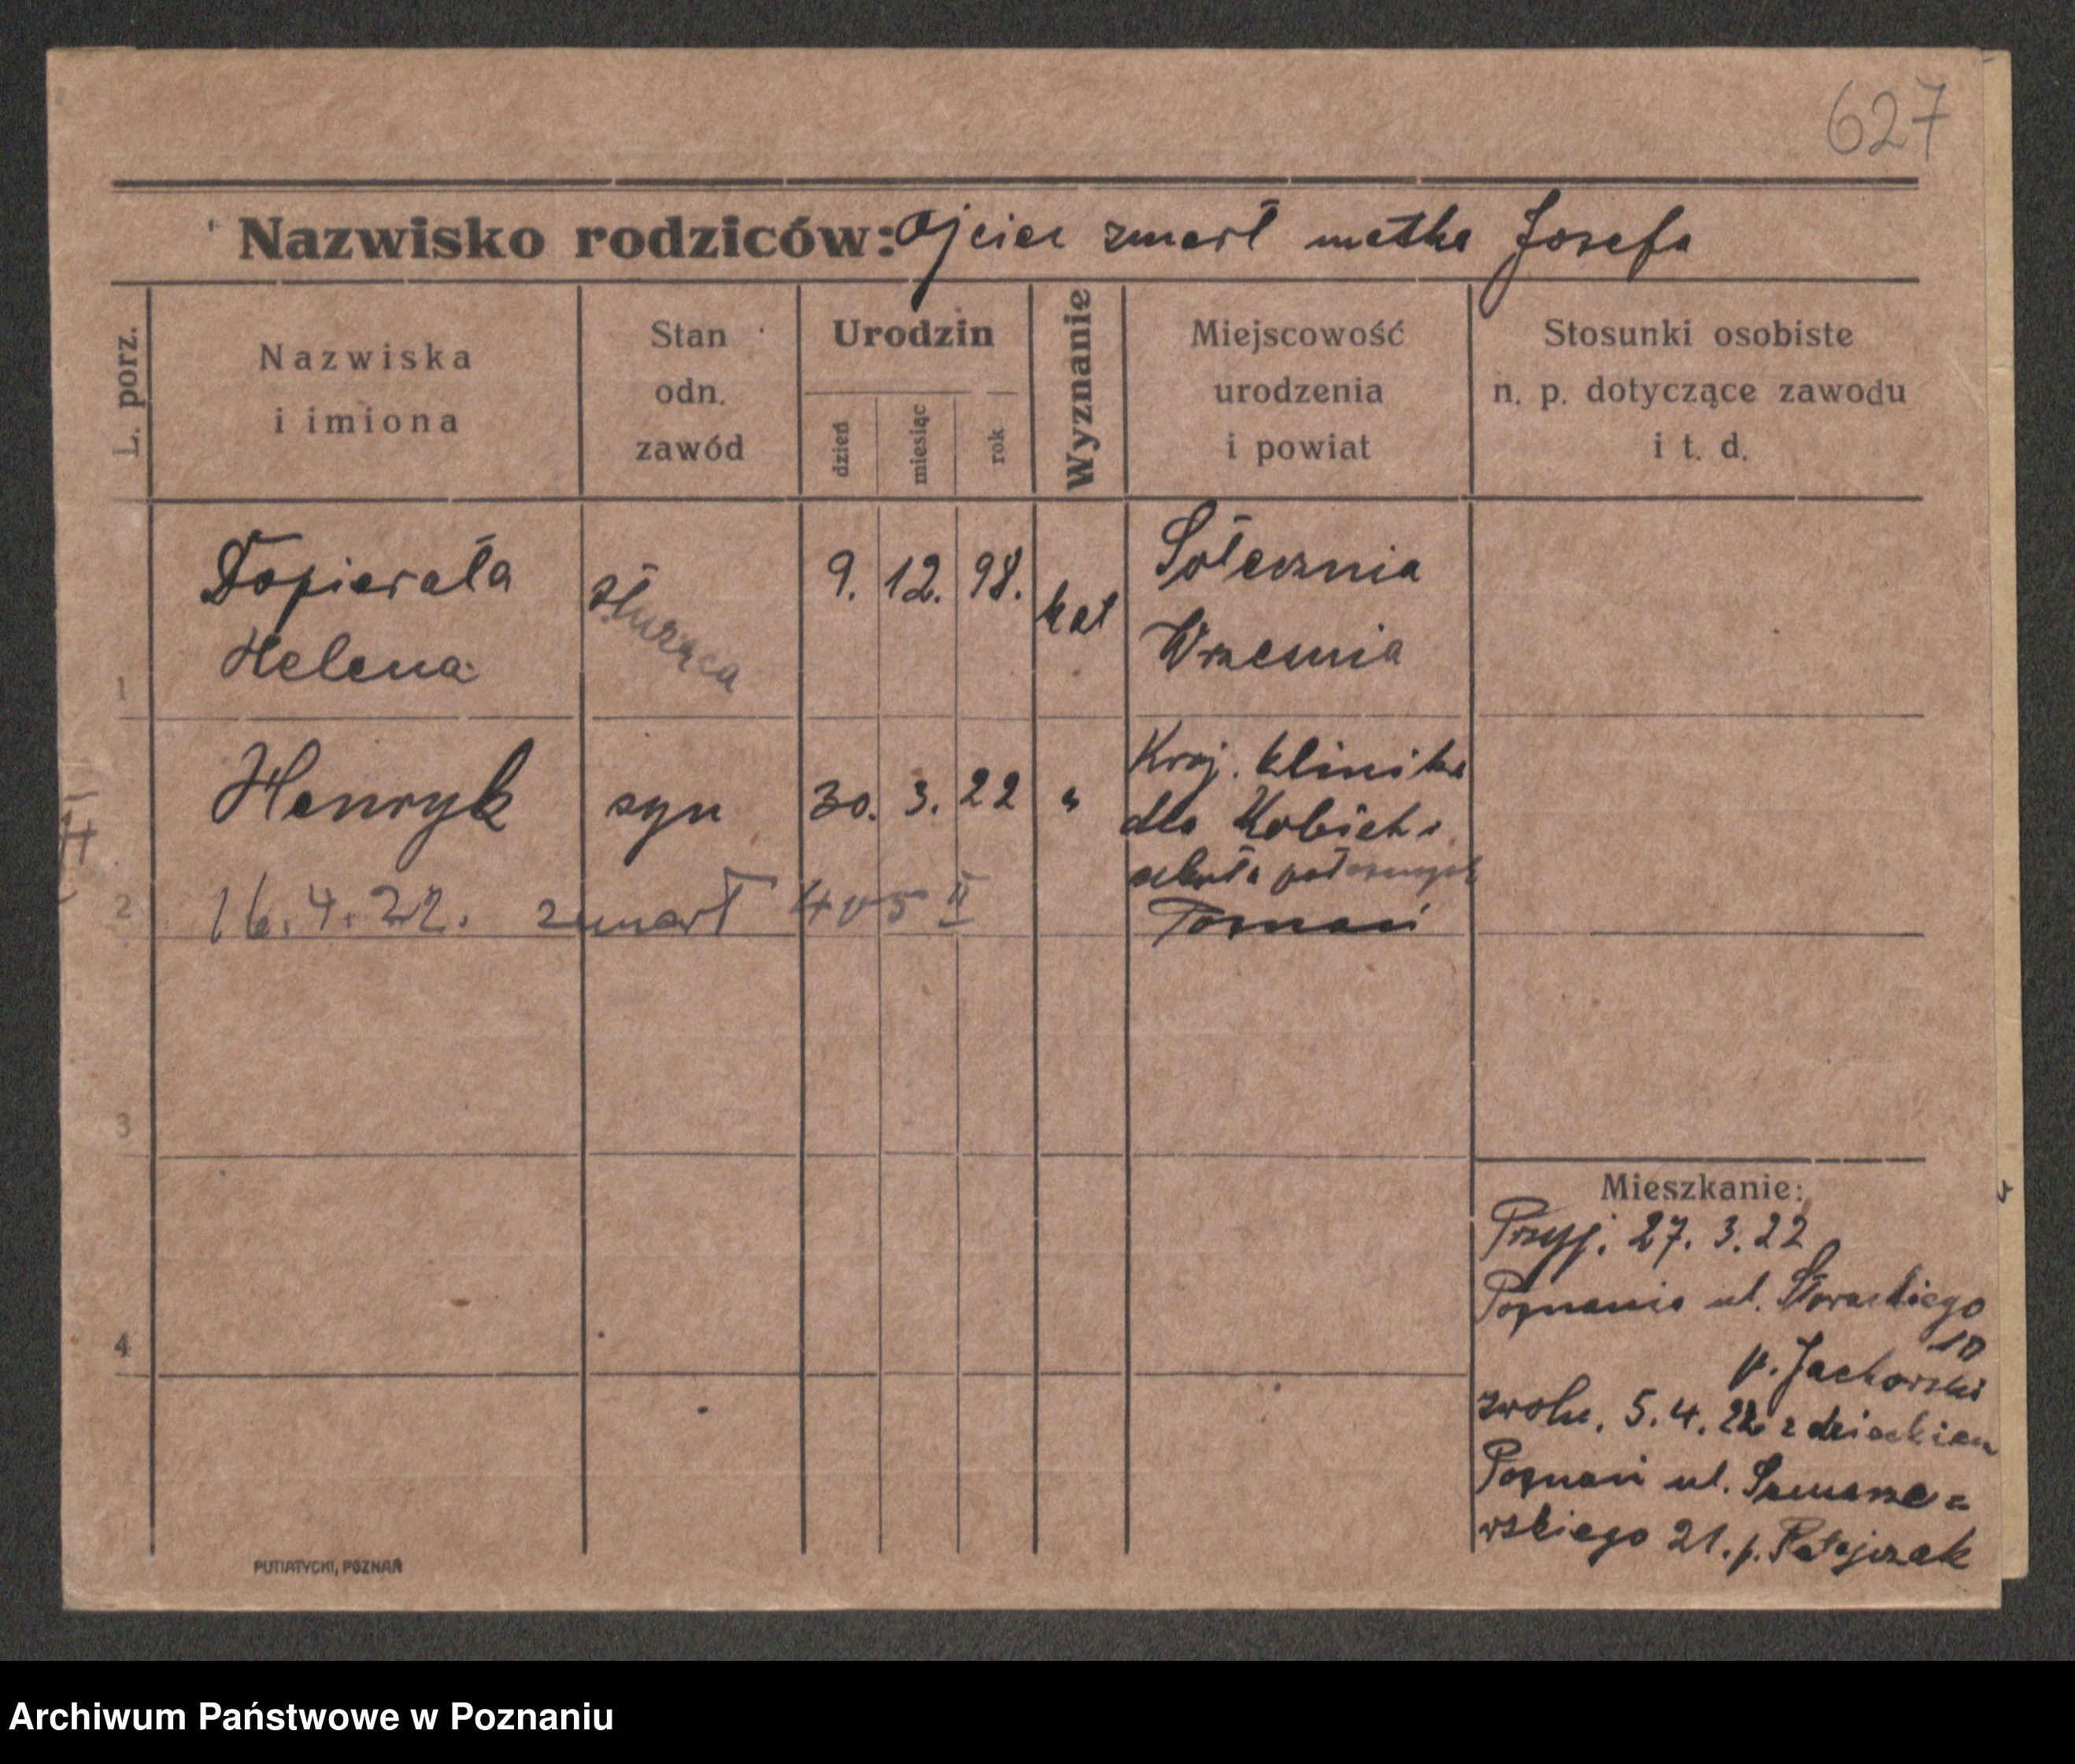 627
Nazwisko rodziców: Ojciec zmarł matka Josefa
L. porz.
Nazwiska
i imiona
Stan
odn.
zawód
Urodzin
dzień
miesiąc
rok
Wyznanie
Miejscowość
urodzenia
i powiat
Stosunki osobiste
n. p. dotyczące zawodu
i t. d.
1
Dopierała
Helena
służąca
9. 12. 98.
kat
Sołecznia
Wrzesnia
2
Henryk
syn
30. 3. 22
"
Kraj. klinika
dla Kobiet i
szkoła położnych
Poznań
16. 4. 22. zmarł 405 II
II
3
4
Mieszkanie:
Przyj. 27. 3. 22
Poznania ul.
10
p. Jachorski
zwoln. 5. 4. 22 z dzieckiem
Poznań ul. Samarze=
wskiego 21. p. Ratajczak
PUTIATYCKI, POZNAŃ
Archiwum Państwowe w Poznaniu